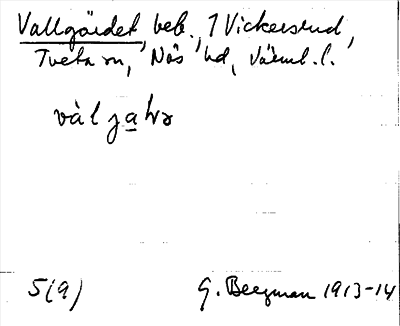 Vallgärdet, beb., 1 Vickersrud,
Tveta sn, Näs hd, Värml. l.
5(9) G. Bergman 1913-14